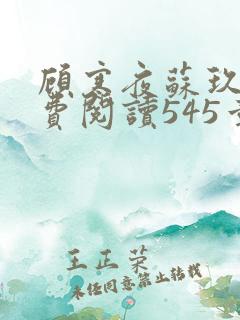 顧寒夜蘇玖
費閱讀545
王正荣
未经同意禁止转载